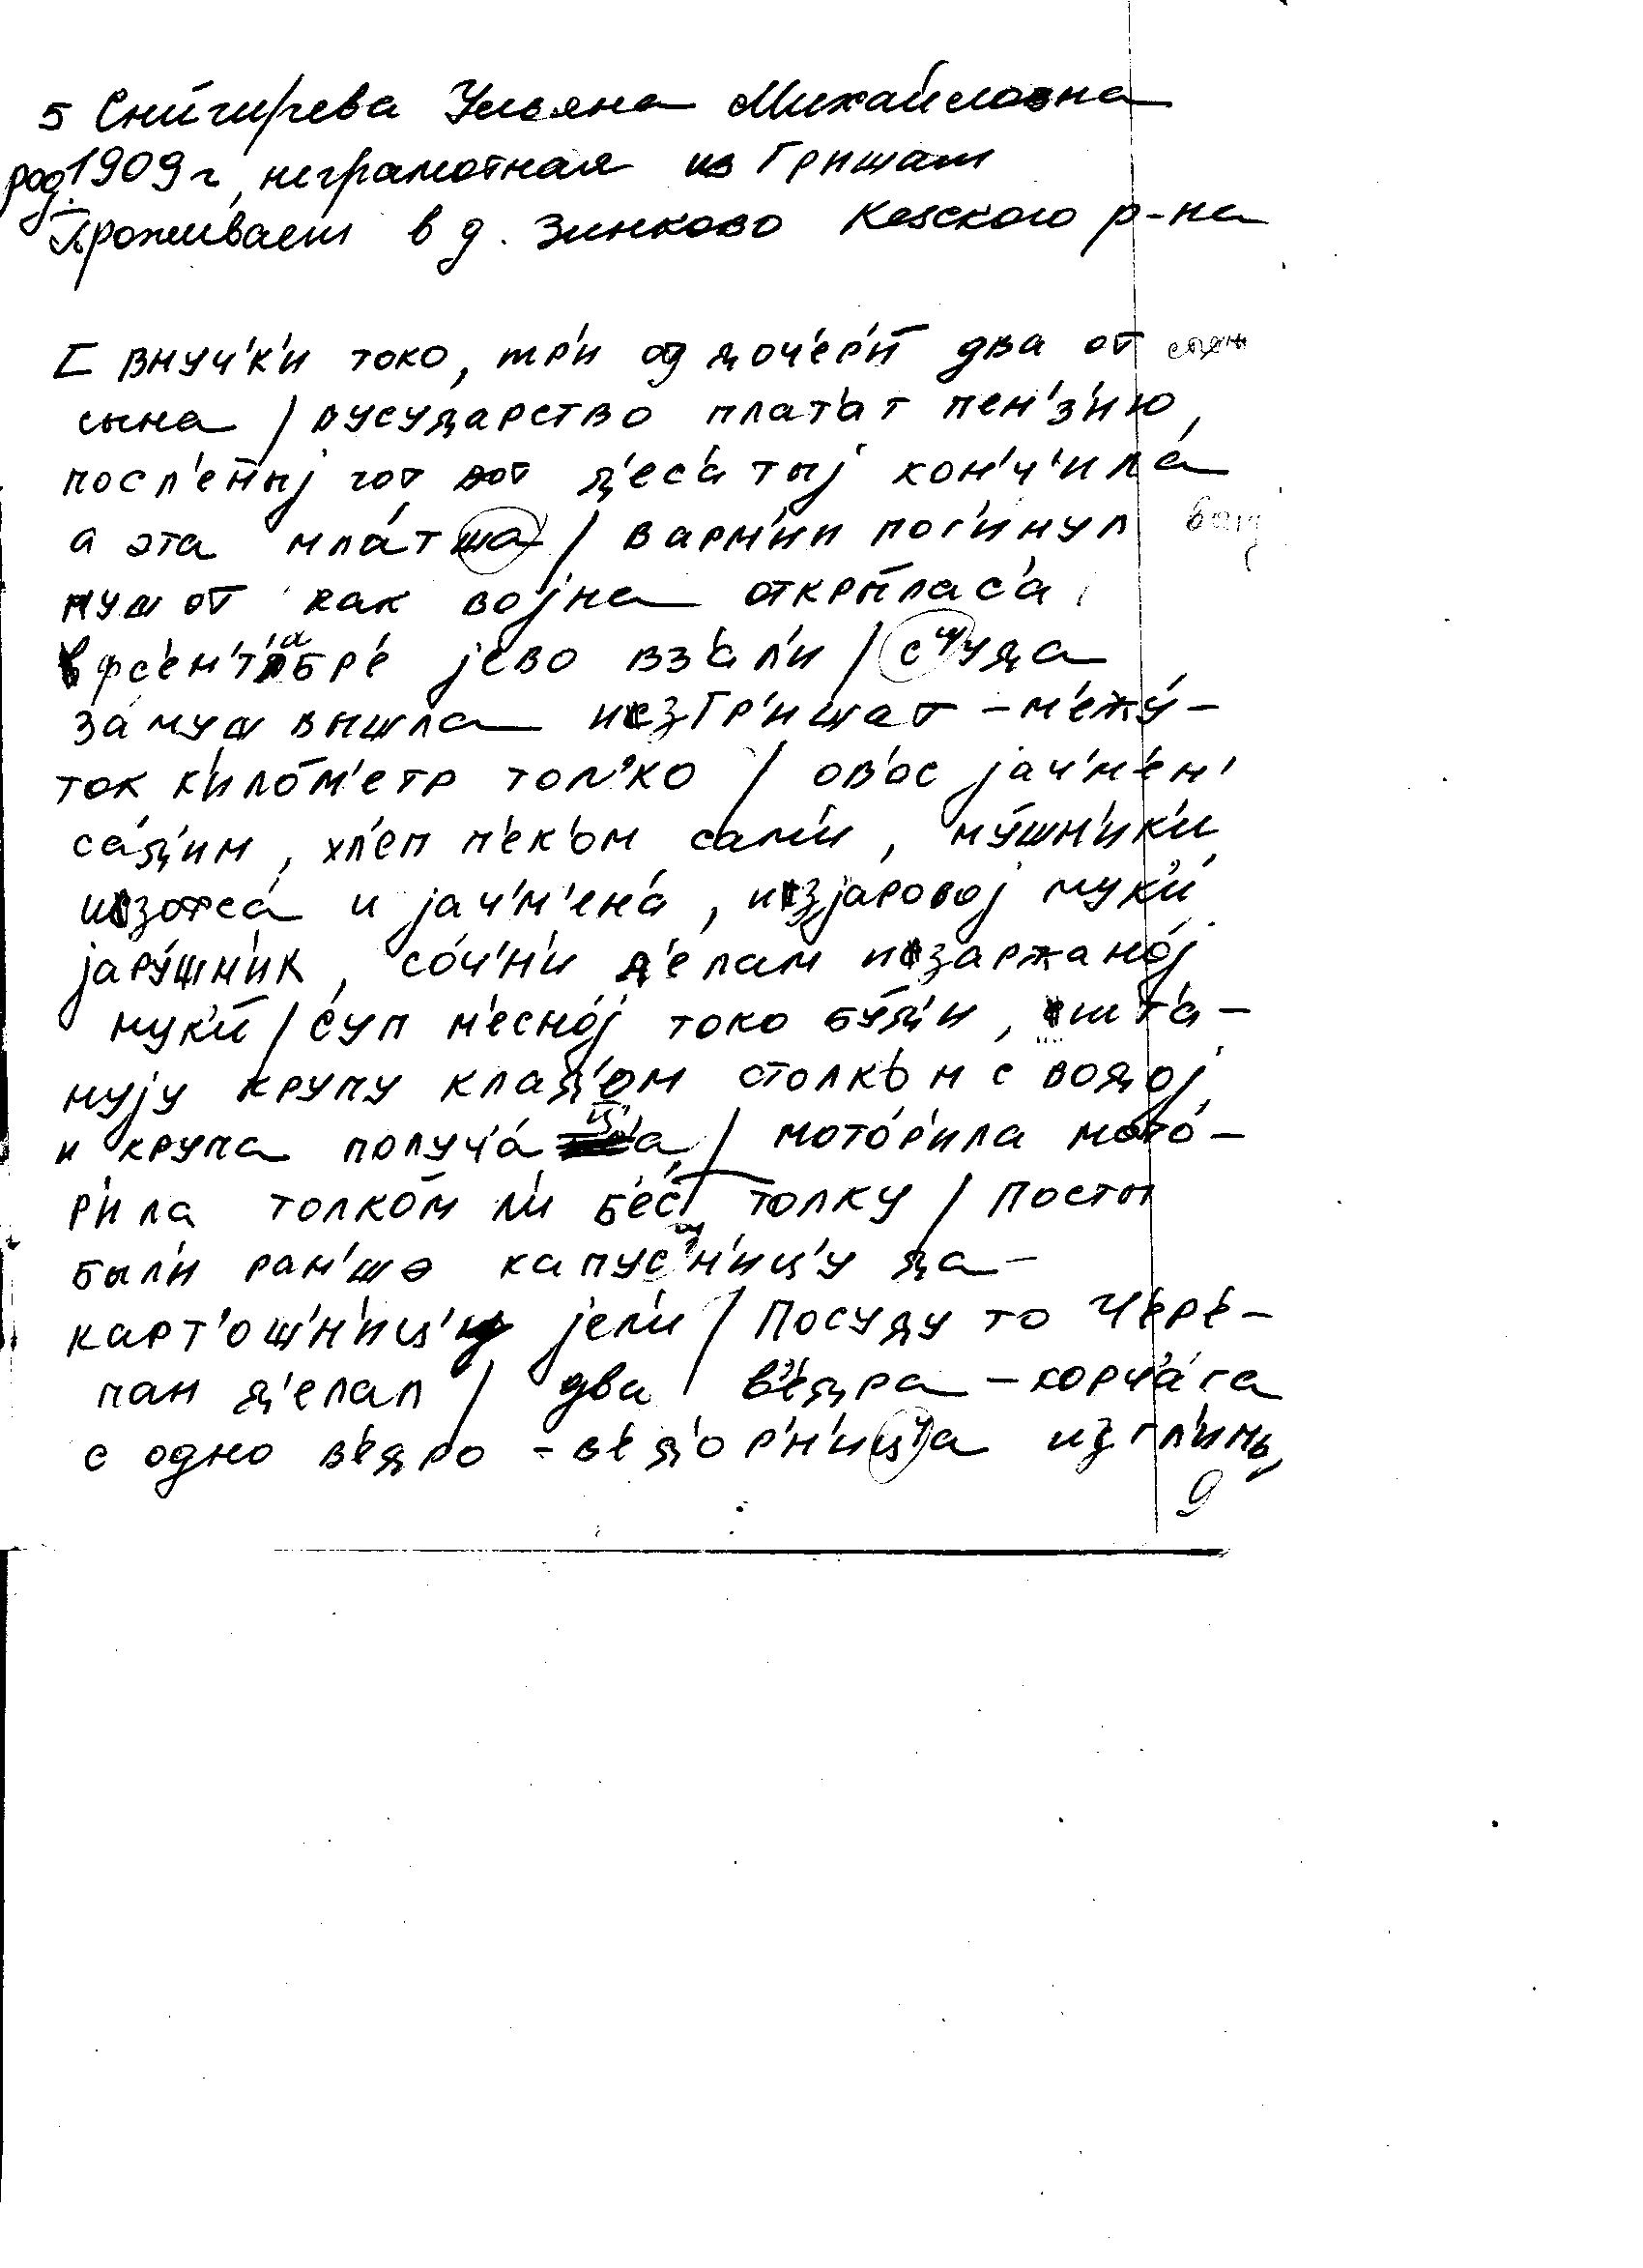 5 Снигирева Ульяна Михайловна
род. 1909 г, неграмотная из Гришат
Проживает в д. Зинково Кезского р-на
[ внуч'к'и токо, тр'и од доч'ер'и два от
сына / гусударство плат'ат пен'з'ию,
посл'е́тыј гот вот д'ес'а́тыј кон'ч'ила
а эта мла́тша / варм'ии пог'инул
муш от как војна откры́лас'а,
фс'ент'абр'е јево вз'ал'и / с'уда
за́муш вышла изГр'ишат - м'ежу́-
ток к'ило́м'етр тол'ко / ов'ос јач'м'ен'
са́д'им, хл'еп п'ек'ом сам'и, му́шн'ик'и
изофса́ и јач'м'ен'а́, изјаровој мук'и́
јару́шн'ик, со́ч'н'и д'елам изаржано́ј
мук'и́ / суп м'есно́ј токо бу́д'и, шт'а-
нују крупу клад'ом столк'ом с водој,
и крупа получ'а́ц'а / мото́р'ила мото́-
р'ила толко́м л'и б'ес толку / посты
был'и ран'шэ капус'н'иц'у да-
карт'ош'н'иц'у јел'и / Посуду то Ч'ер'е-
пан д'елал / два в'едра - корч'а́га
с одно в'едро - в'ед'о́р'н'иц'а из гл'ины
9